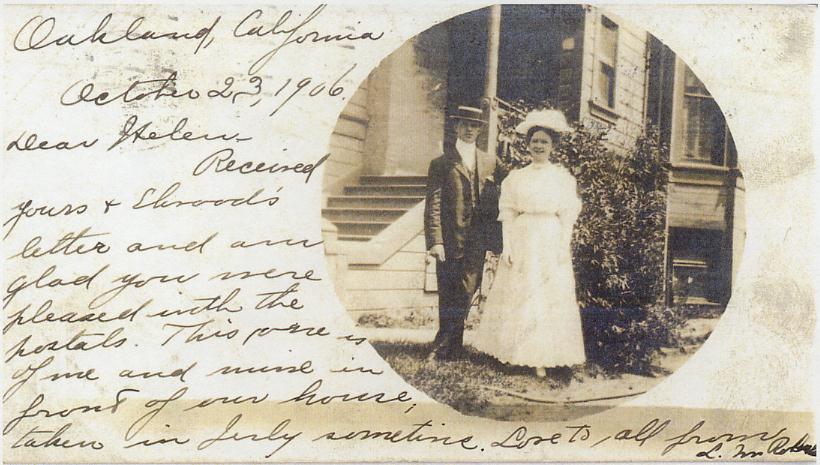 Oakland, California
October 23, 1906.
Dear Helen—
Received
yours & Elwood's
letter and am
glad you were
pleased with the
postals. This one is
of me and mine in
front of our house,
taken in July sometime. Love to all from
L.